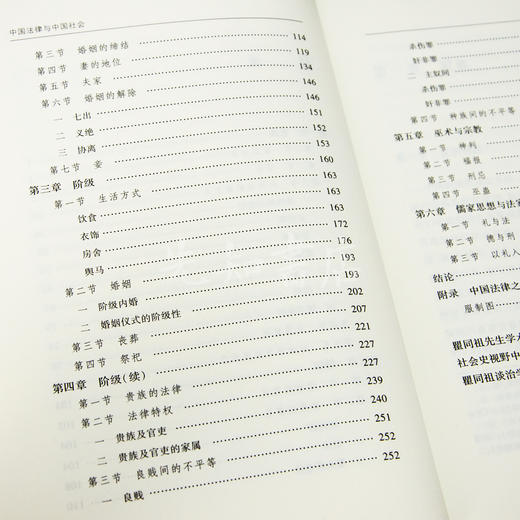 中国法律与中国社会
第三节 婚姻的缔结 114
第四节 妻的地位 119
第五节 夫家 134
第六节 婚姻的解除 146
一 七出 146
二 义绝 151
三 协离 152
第七节 妾 153
第三章 阶级 160
第一节 生活方式 163
饮食 163
衣饰 163
房舍 172
舆马 176
第二节 婚姻 193
一 阶级内婚 193
二 婚姻仪式的阶级性 202
第三节 丧葬 207
第四节 祭祀 221
第四章 阶级(续) 227
第一节 贵族的法律 227
第二节 法律特权 239
一 贵族及官吏 240
二 贵族及官吏的家属 251
第三节 良贱间的不平等 252
一 良贱 252
杀伤罪
奸非罪
二 主奴间
杀伤罪
奸非罪
第四节 种族间的不平等
第五章 巫术与宗教
第一节 神判
第二节 福报
第三节 刑忌
第四节 巫蛊
第六章 儒家思想与法家
第一节 礼与法
第二节 德与刑
第三节 以礼入
结论
附录 中国法律之
服制图
瞿同祖先生学术
社会史视野中
瞿同祖谈治学